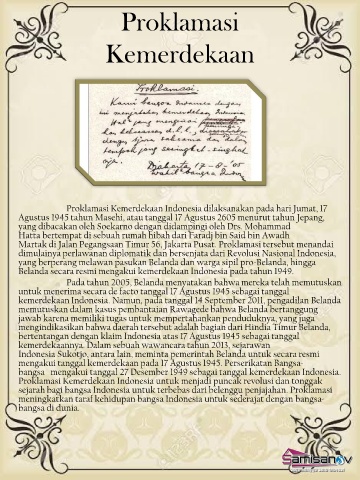 Proklamasi
Kemerdekaan
Proklamasi.
Kami bangsa Indonesia dengan
ini menjatakan kemerdekaan Indonesia.
Hal2 jang mengenai
d.l.l.,
dengan tjara saksama dan dalam
tempoh jang sesingkat-singkat
nja.
Djakarta 17-8-'05
Wakil2 bangsa Indon
Proklamasi Kemerdekaan Indonesia dilaksanakan pada hari Jumat, 17
Agustus 1945 tahun Masehi, atau tanggal 17 Agustus 2605 menurut tahun Jepang,
yang dibacakan oleh Soekarno dengan didampingi oleh Drs. Mohammad
Hatta bertempat di sebuah rumah hibah dari Faradj bin Said bin Awadh
Martak di Jalan Pegangsaan Timur 56, Jakarta Pusat. Proklamasi tersebut menandai
dimulainya perlawanan diplomatik dan bersenjata dari Revolusi Nasional Indonesia,
yang berperang melawan pasukan Belanda dan warga sipil pro-Belanda, hingga
Belanda secara resmi mengakui kemerdekaan Indonesia pada tahun 1949.
Pada tahun 2005, Belanda menyatakan bahwa mereka telah memutuskan
untuk menerima secara de facto tanggal 17 Agustus 1945 sebagai tanggal
kemerdekaan Indonesia. Namun, pada tanggal 14 September 2011, pengadilan Belanda
memutuskan dalam kasus pembantaian Rawagede bahwa Belanda bertanggung
jawab karena memiliki tugas untuk mempertahankan penduduknya, yang juga
mengindikasikan bahwa daerah tersebut adalah bagian dari Hindia Timur Belanda,
bertentangan dengan klaim Indonesia atas 17 Agustus 1945 sebagai tanggal
kemerdekaannya. Dalam sebuah wawancara tahun 2013, sejarawan
Indonesia Sukotjo, antara lain, meminta pemerintah Belanda untuk secara resmi
mengakui tanggal kemerdekaan pada 17 Agustus 1945. Perserikatan Bangsa-
bangsa mengakui tanggal 27 Desember 1949 sebagai tanggal kemerdekaan Indonesia.
Proklamasi Kemerdekaan Indonesia untuk menjadi puncak revolusi dan tonggak
sejarah bagi bangsa Indonesia untuk terbebas dari belenggu penjajahan. Proklamasi
meningkatkan taraf kehidupan bangsa Indonesia untuk sederajat dengan bangsa-
bangsa di dunia.
Samisanov